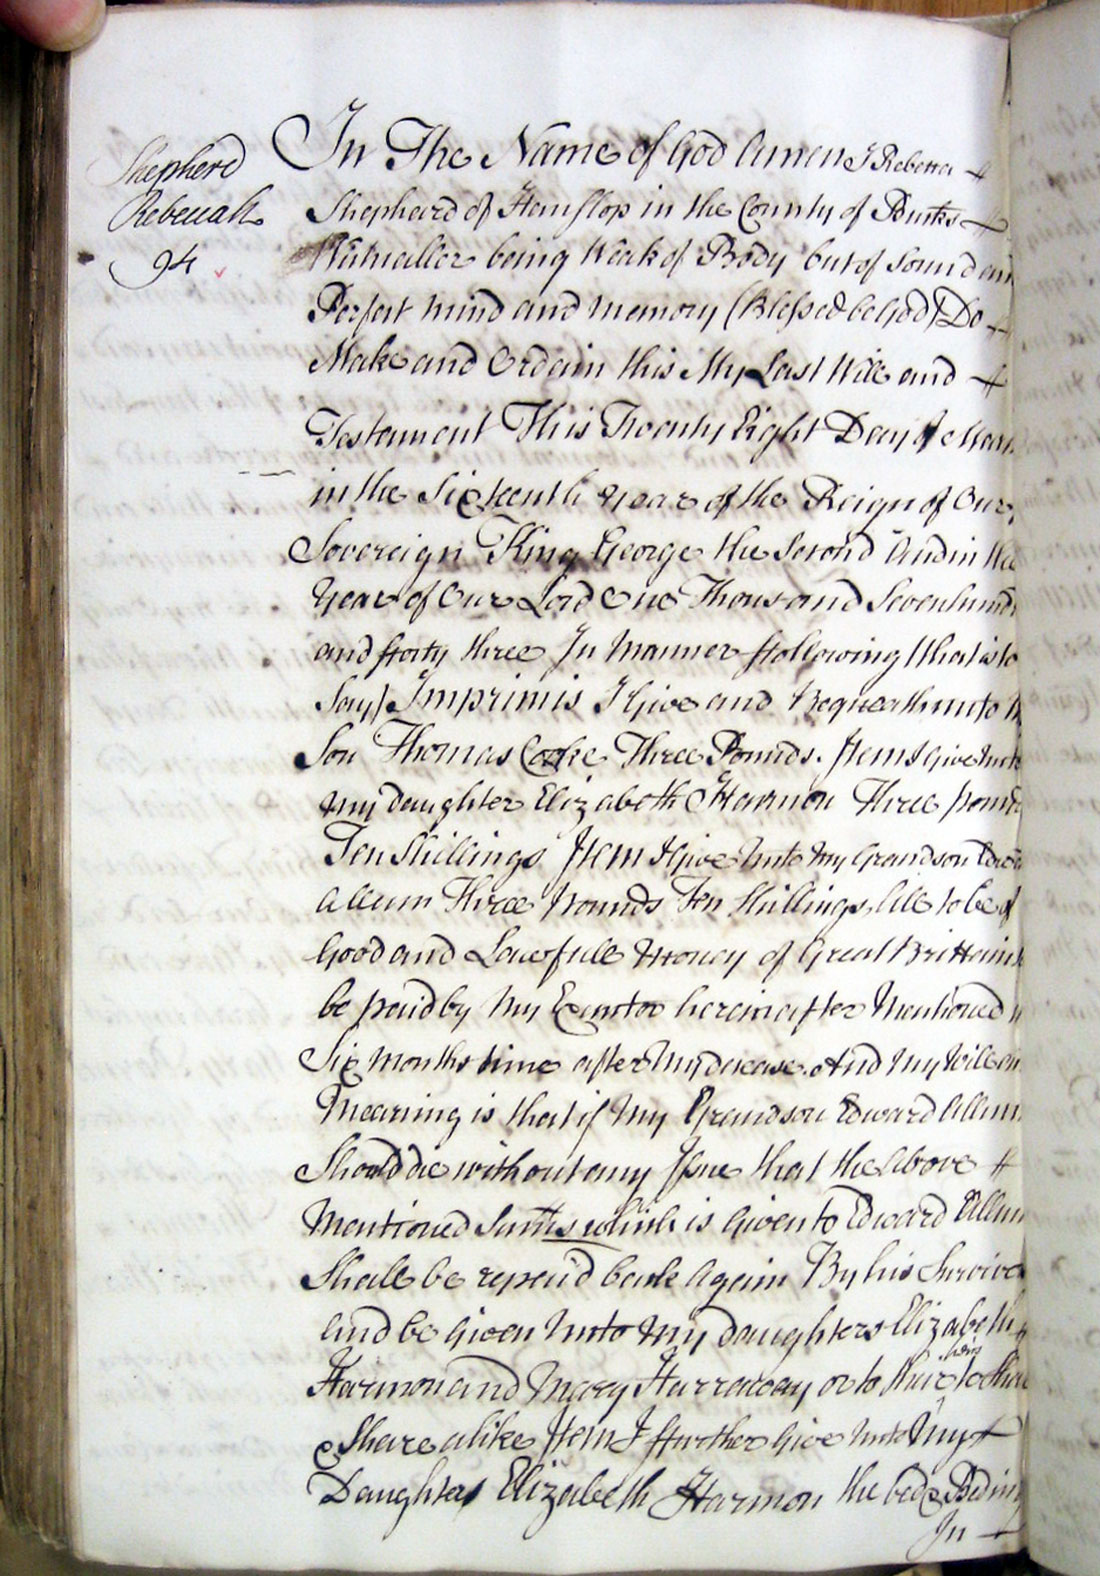 Shepherd
Rebeccah
94
In The Name of God Amen I Rebecca
Shepherd of Hanslop in the County of Bucks
Victualler being Weak of Body but of sound an
Perfect mind and memory (Blessed be God) Do
Make and Ordain this My Last Will and
Testament This Twenty Eight Day of Mar
in the Sixteenth Year of the Reign of Our
Sovereign King George the Second And in the
Year of Our Lord One Thousand Sevenhund
and fforty three In Manner ffollowing (that is to
Say) Imprimis I Give and Bequeath unto
Son Thomas Cooke Three Pounds. Item I Give unto
my Daughter Elizabeth Harmon Three pound
Ten Shillings Item I Give Unto My Grandson
Allum Three Pounds Ten Shillings, All to be of
Good and Lawfull Money of Great Brittain
be paid by My Executor hereinafter Mentioned
Six Months time after My decease. And My Will an
Meaning is that if My Grandson Edward Allum
Should die without any Issue that the Above
Mentioned Sums which is Given to Edward Allum
Shall be repaid back Again By his
And be Given Unto My Daughters Elizabeth
Harmon and Mary Harraway or to their heirs to Share
& Share alike Item I ffurther Give Unto My
Daughter Elizabeth Harmon the bed & Beding
In